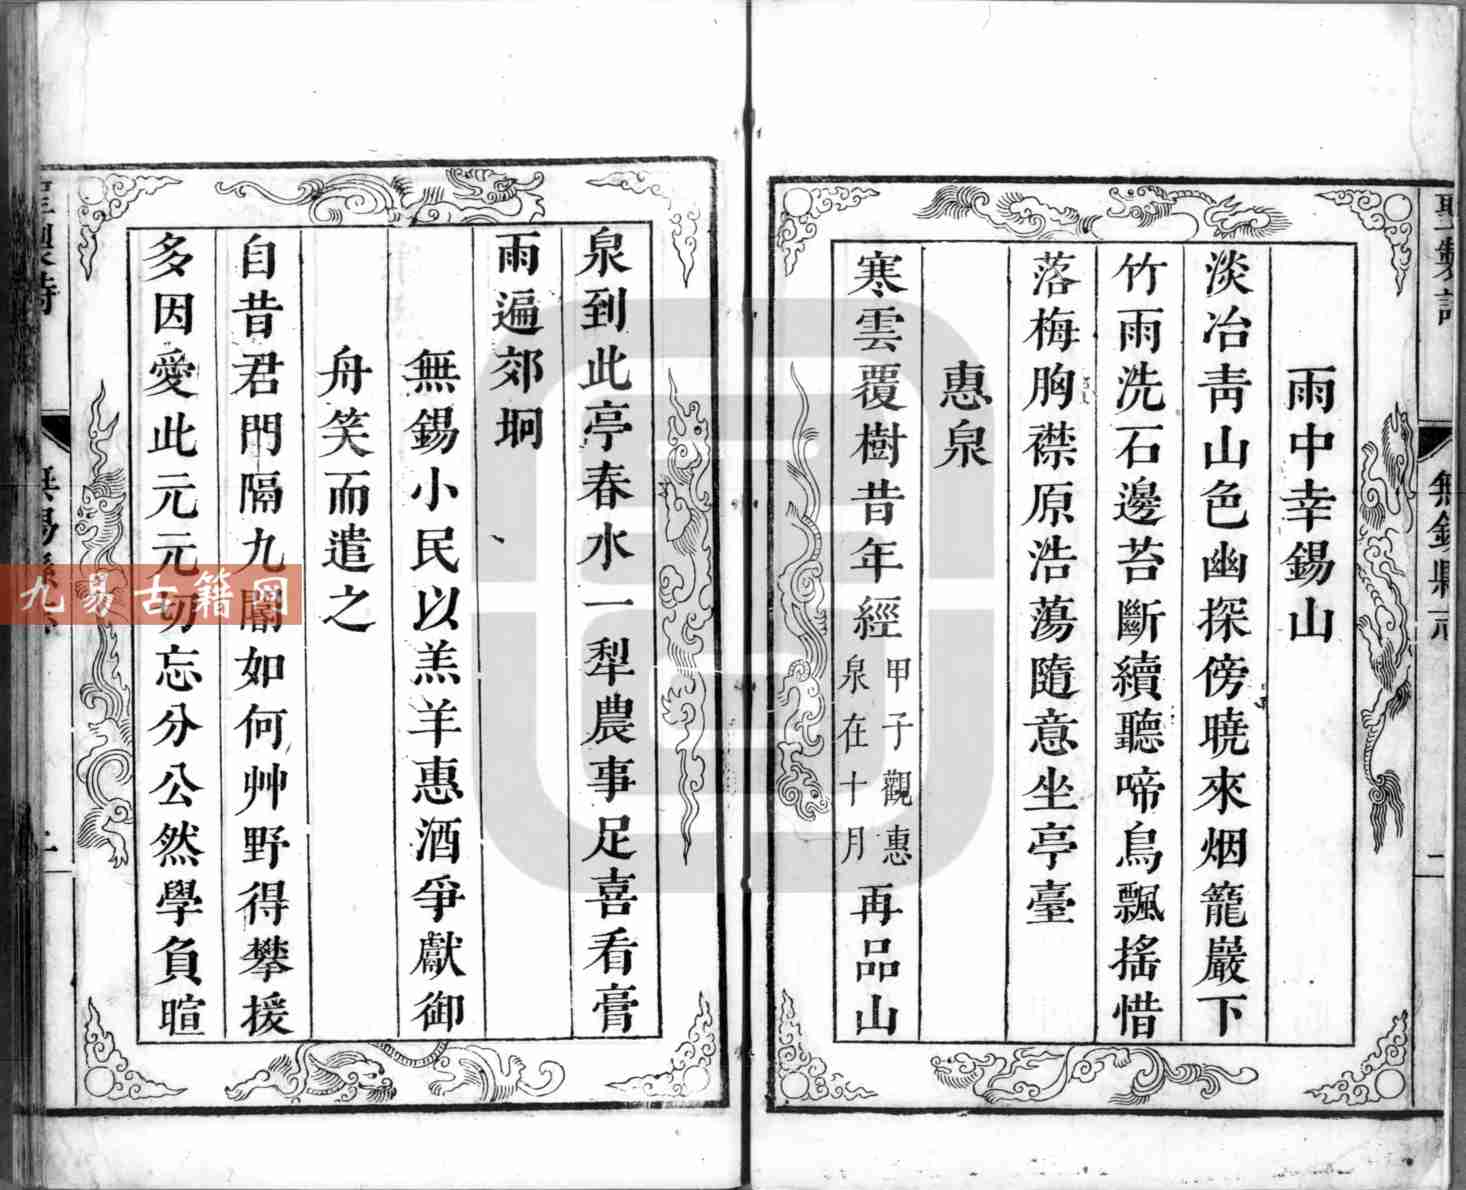 雨中幸錫山
淡冶靑山色幽探傍曉來烟籠巖下
竹雨洗石邊苔斷續聽啼鳥飄搖惜
落梅胸襟原浩蕩隨意坐亭臺
惠泉
寒雲覆樹昔年經甲子觀惠泉在十月再品山
無錫縣
二
泉到此亭春水一犁農事足喜看膏
雨遍郊坰
無錫小民以羔羊惠酒爭獻御
舟笑而遣之
自昔君門隔九閽如何艸野得攀援
多因愛此元元切忘分公然學負暄
九易古籍网